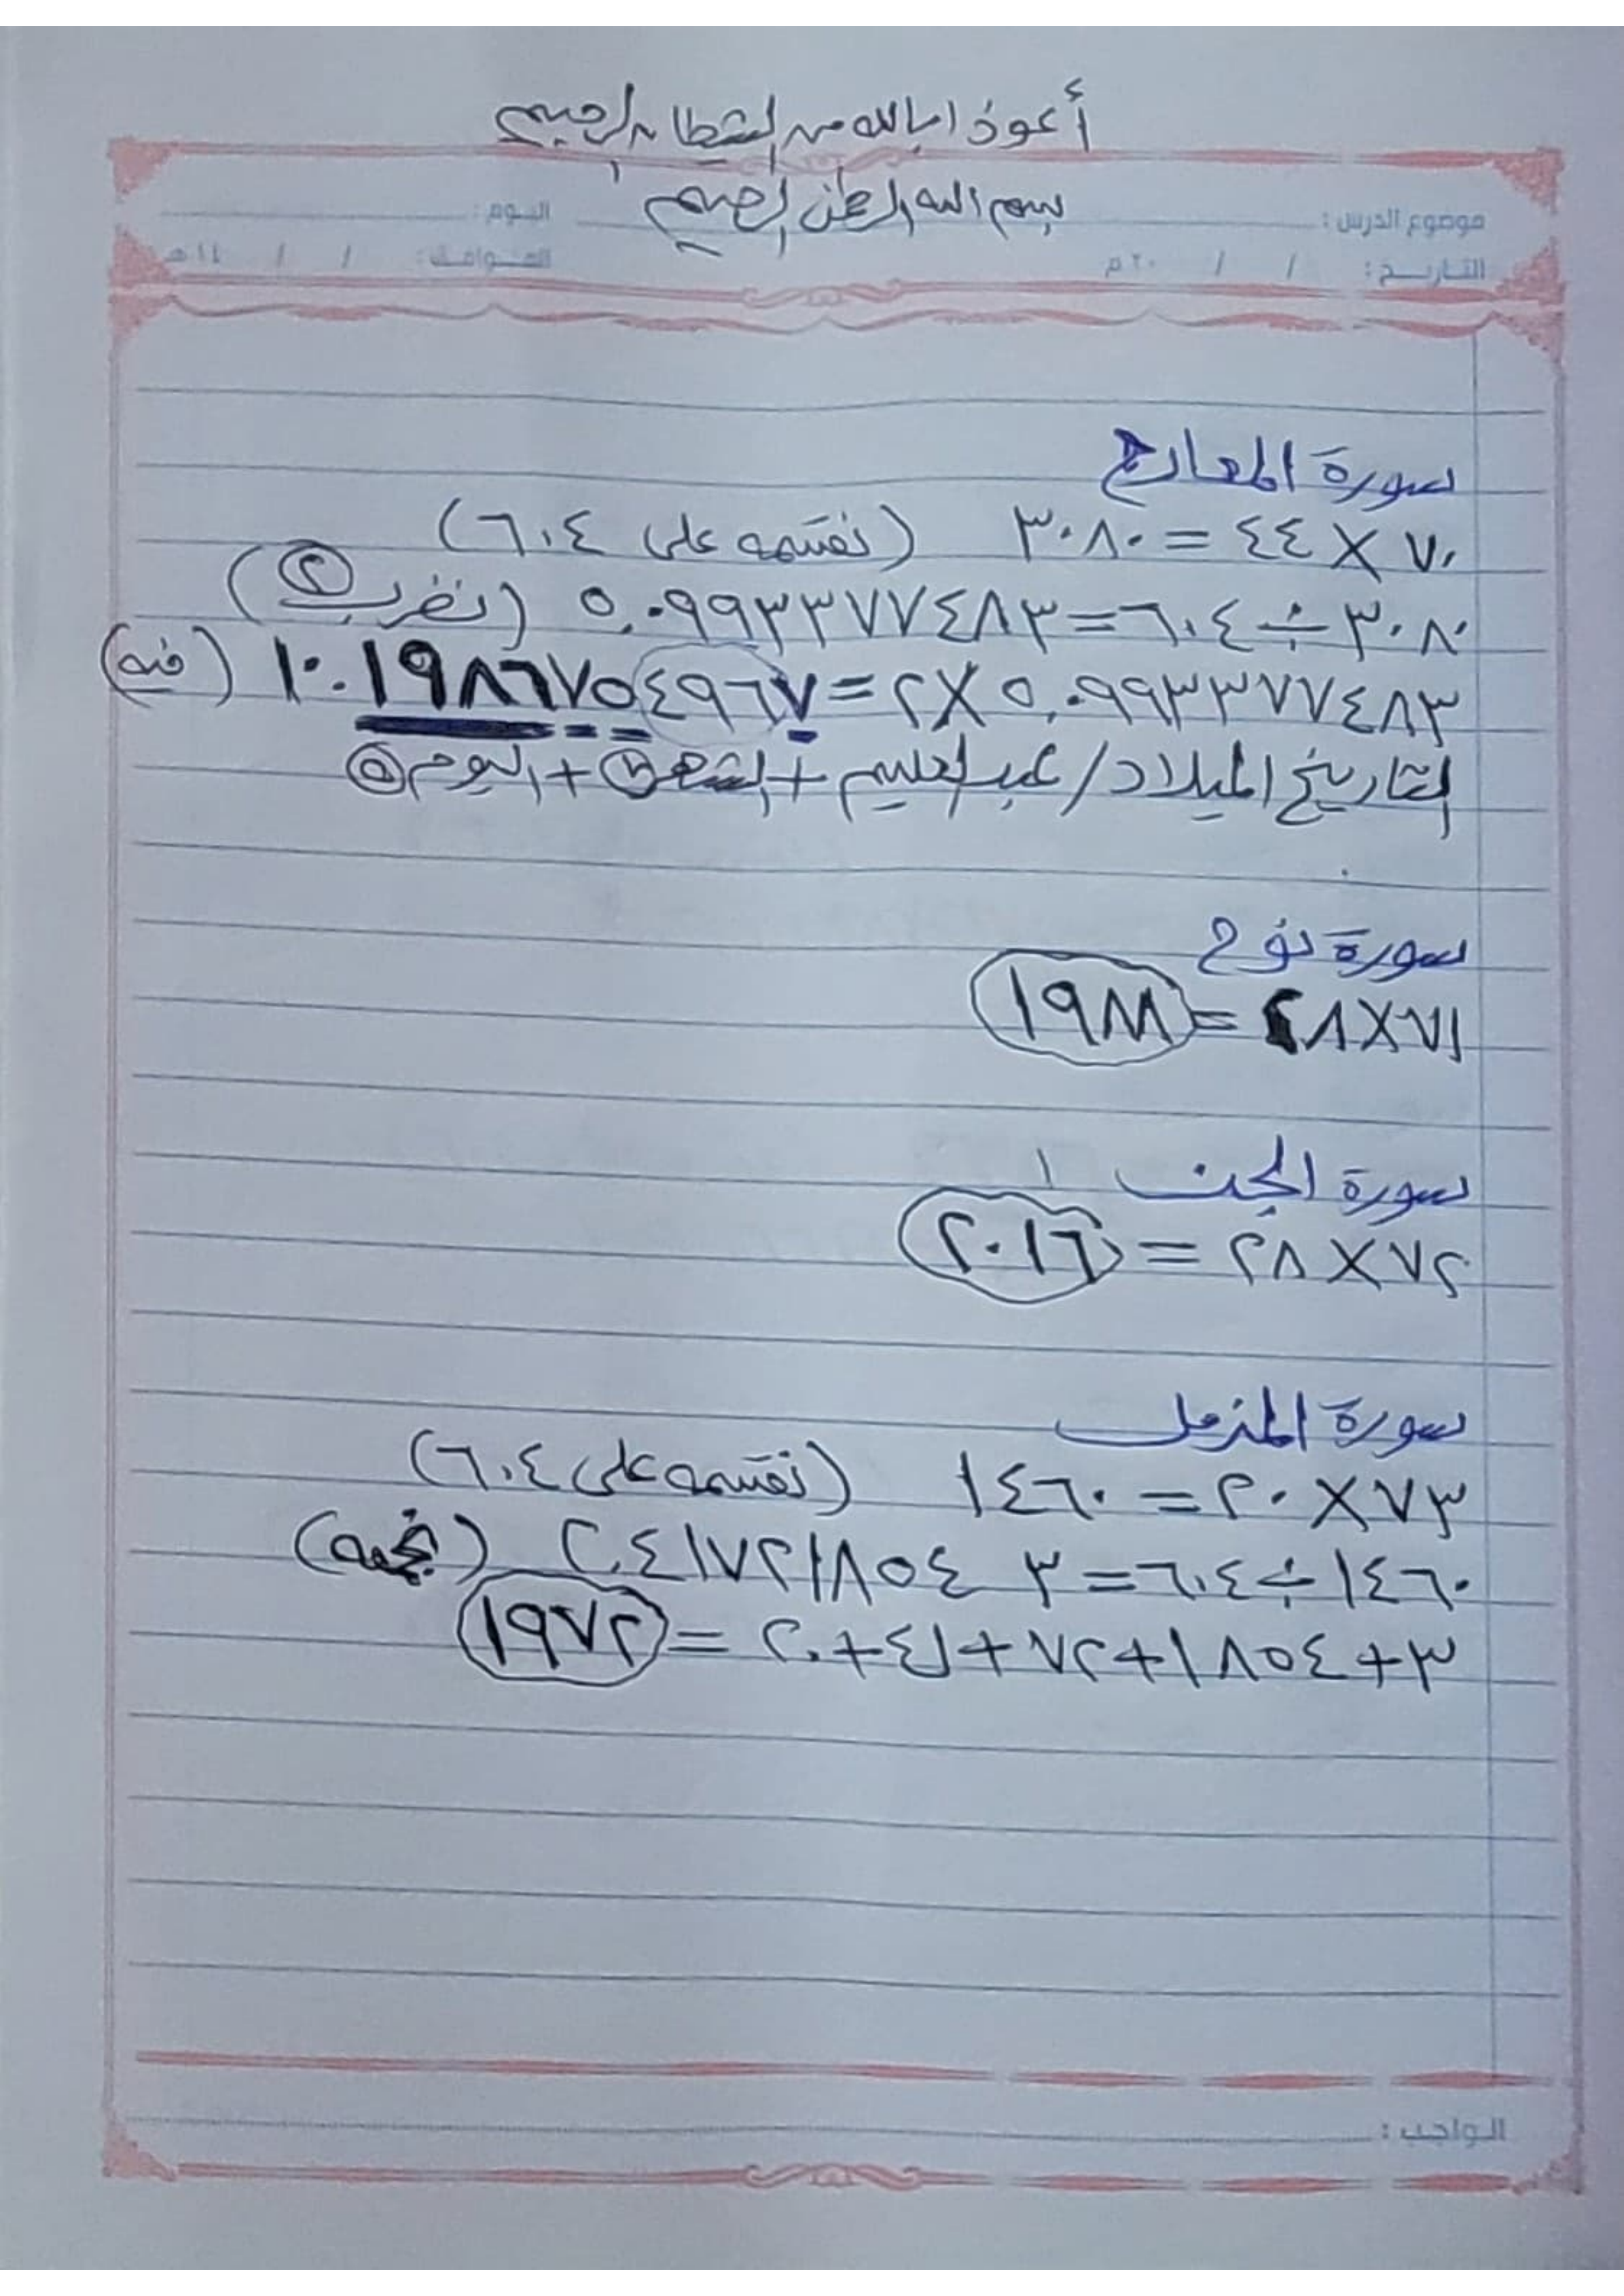 أعوذ بالله من الشيطان الرجيم
بسم الله الرحمن الرحيم
موضوع الدرس : اليوم :
التاريخ : / / ٢٠ م الموافق : / / ١٤ هـ
سورة المعارج
٧٠ × ٤٤ = ٣٠٨٠ (نقسمه على ٦٠٤)
٣٠٨٠ ÷ ٦٠٤ = ٥,٠٩٩٣٣٧٧٤٨٣ (نضرب ٢)
٥,٠٩٩٣٣٧٧٤٨٣ × ٢ = ١٠.١٩٨٦٧٥٤٩٦٧ (فيه)
التاريخ الميلاد / عبد العليم + الشهر ٧ + اليوم ٥
سورة نوح
٧١ × ٢٨ = ١٩٨٨
سورة الجن ١
٧٢ × ٢٨ = ٢٠١٦
سورة المزمل
٧٣ × ٢٠ = ١٤٦٠ (نقسمه على ٦٠٤)
١٤٦٠ ÷ ٦٠٤ = ٢,٤١٧٢١٨٥٤ ٣ (نجمعه)
٣ + ١٨٥٤ + ٧٢ + ٤١ + ٢,٠ = ١٩٧٢
الواجب :